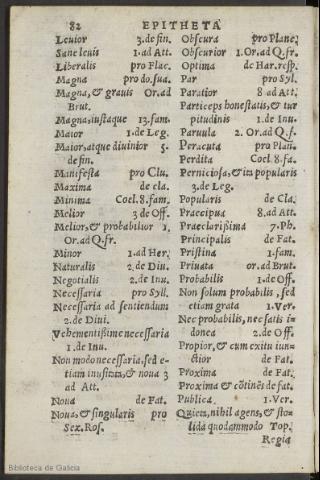 82 EPITHETA
Leuior 3.de fin.
Sane leuis 1.ad Att.
Liberalis pro Flac.
Magna pro do.sua.
Magna, & grauis Or.ad
Brut.
Magna, iustaque 13.fam.
Maior 1.de Leg.
Maior, atque diuinior 5.
de fin.
Manifesta pro Clu.
Maxima de cla.
Minima Coel.8.fam.
Melior 3 de Off.
Melior, & probabilior 1.
Or.ad Q.fr.
Minor 1.ad Her.
Naturalis 2.de Diu.
Negotialis 2.de Inu.
Necessaria pro Syll.
Necessaria ad sentiendum
2.de Diui.
Vehementissime necessaria
1.de Inu.
Non modo necessaria, sed e-
tiam inusitata, & noua 3
ad Att.
Noua de Fat.
Noua, & singularis pro
Sex.Ros.
Obscura pro Planc.
Obscurior 1.Or.ad Q.fr.
Optima de Har.resp.
Par pro Syl.
Paratior 8 ad Att.
Particeps honestatis, & tur
pitudinis 1.de Inu.
Paruula 2. Or.ad Q.f.
Peracuta pro Plan.
Perdita Coel.8.fa.
Perniciosa, & in popularis
3.de Leg.
Popularis de Cla.
Praecipua 8.ad Att.
Praeclarissima 7.Ph.
Principalis de Fat.
Pristina 1.fam.
Priuata or.ad Brut.
Probabilis 1.de Off.
Non solum probabilis, sed
etiam grata 1.Ver.
Nec probabilis, nec satis i-
donea 2.de Off.
Propior, & cum exitu iun-
ctior de Fat.
Proxima de Fat.
Proxima & cōtinēs de fat.
Publica 1.Ver.
Quieta, nihil agens, & sto-
lida quodammodo Top.
Regia
Biblioteca de Galicia